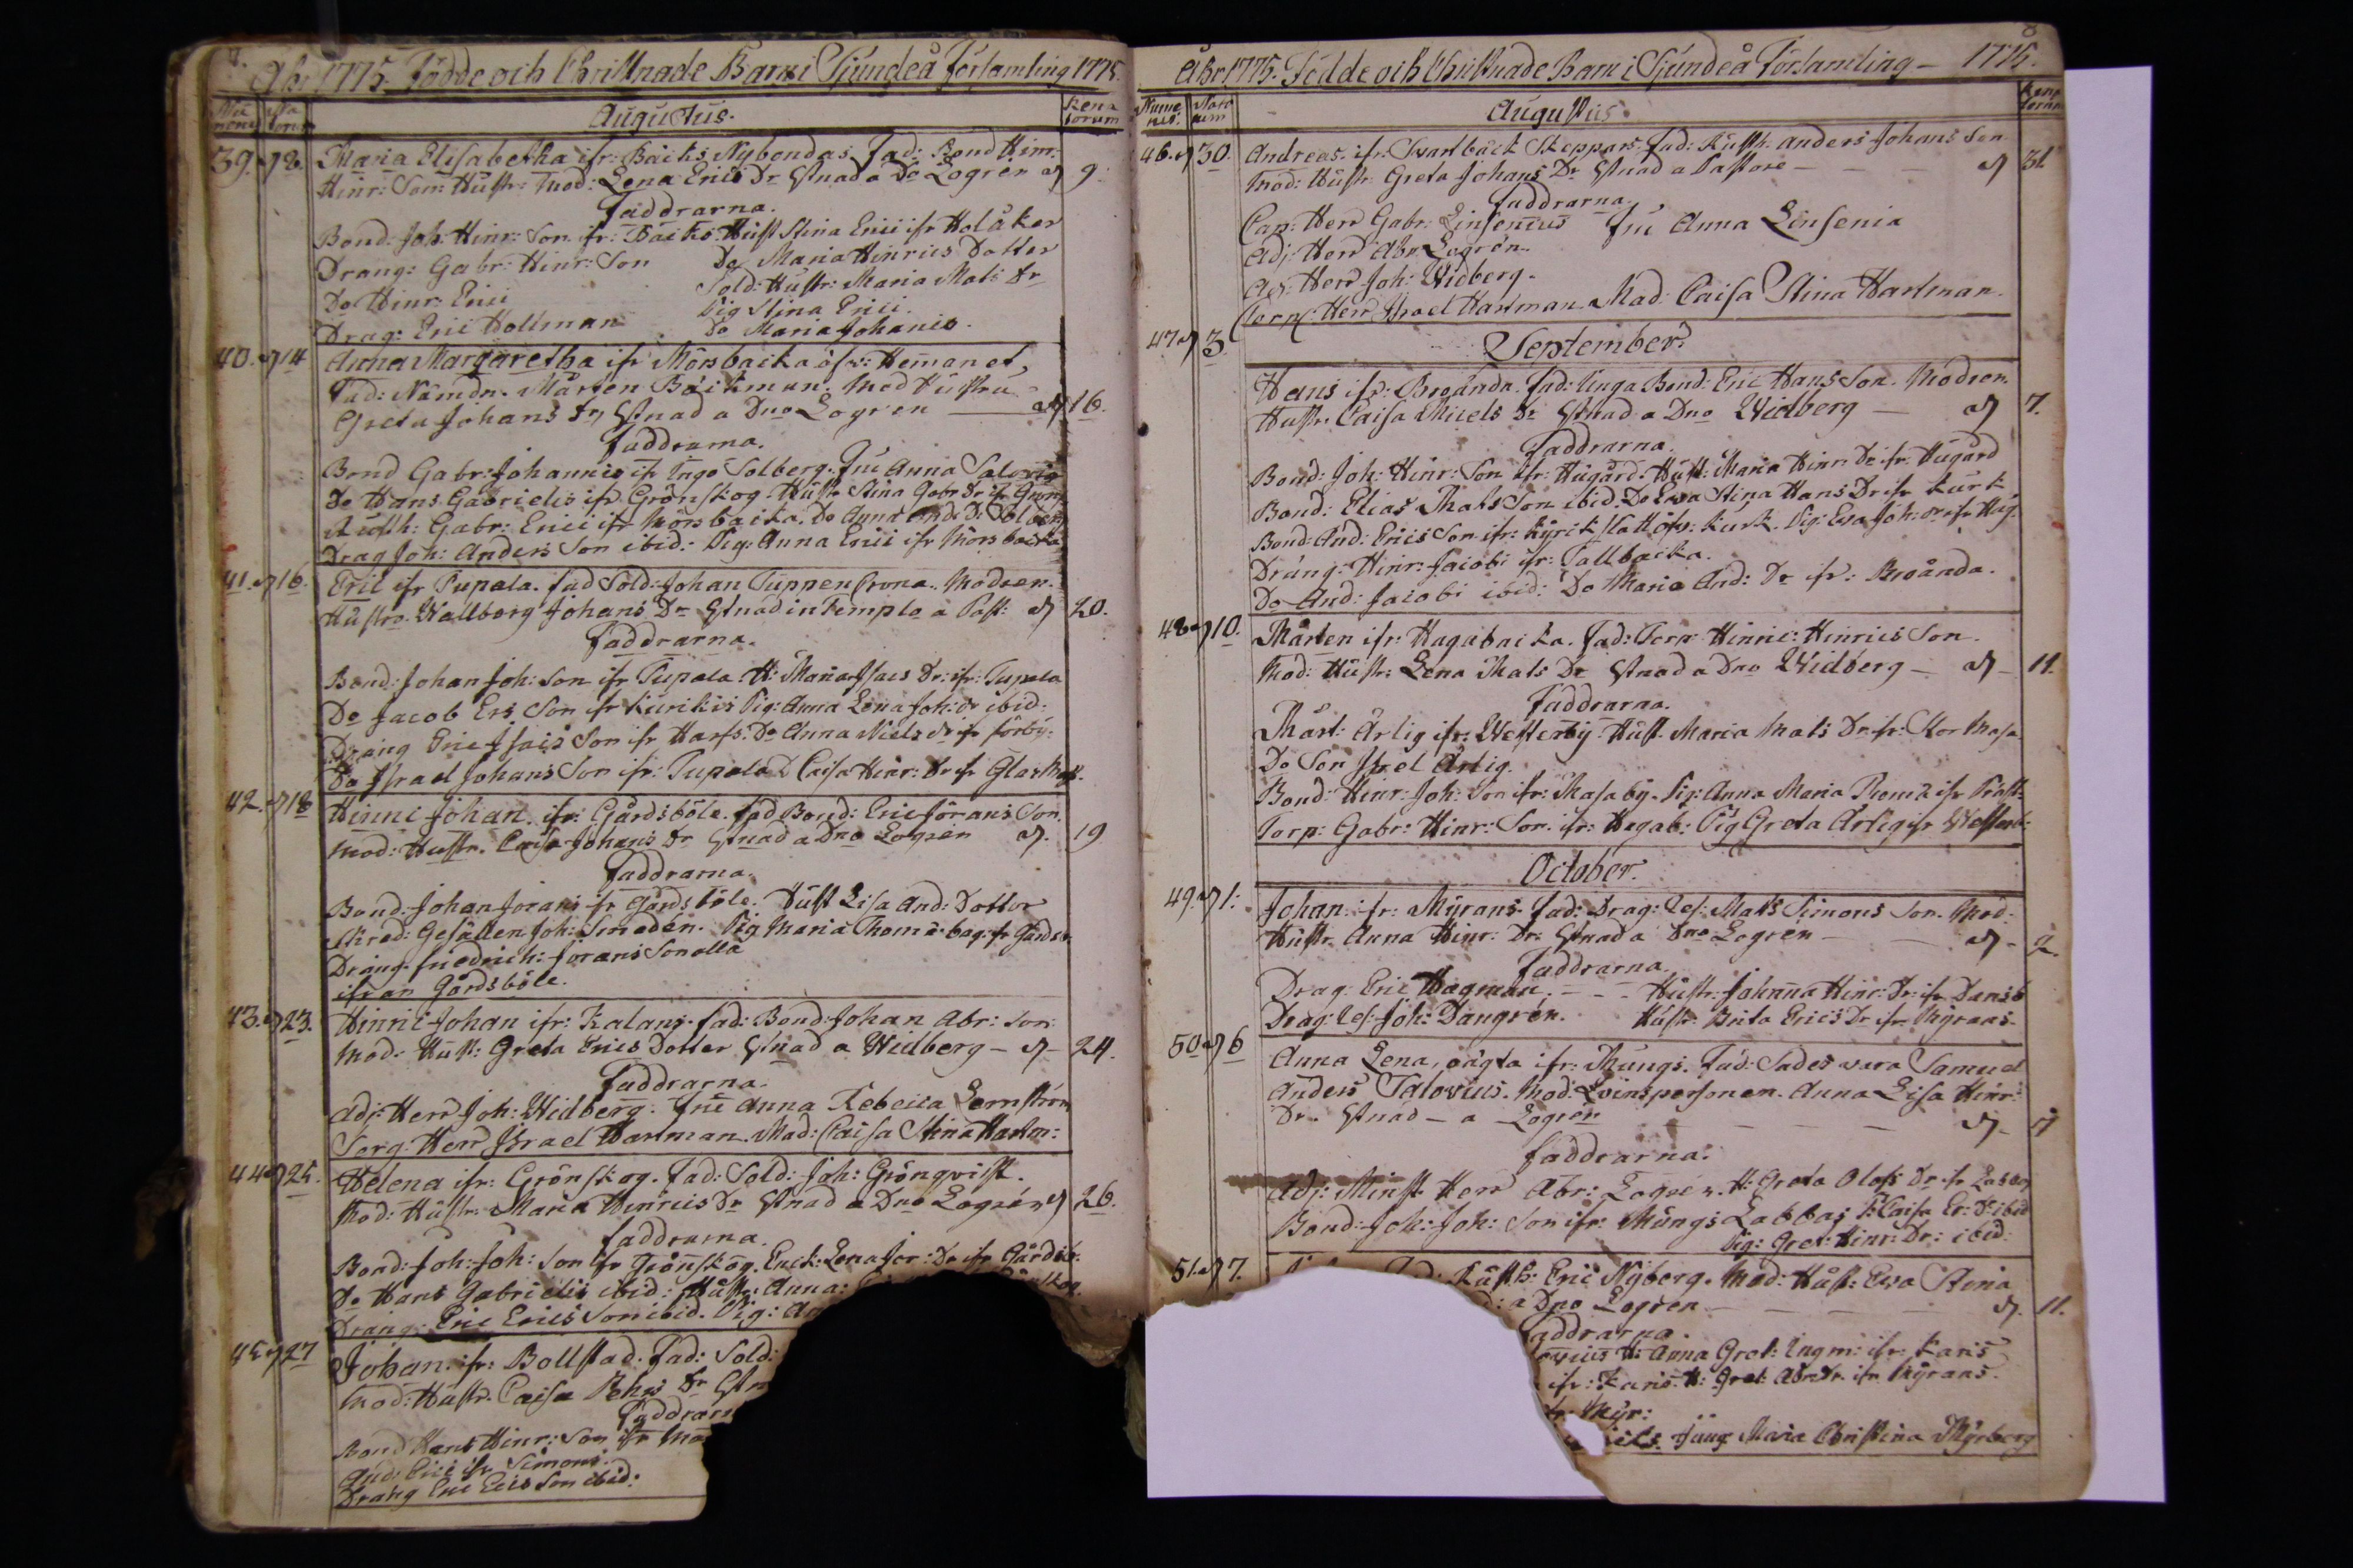 Åhr 1775. Födde och Christnade Barn i Sjundeå Församling 1775.
Nu mene Na torum Augustus. Rena torum
39. d 8. Maria Elisabetha ifr: Bäcks Nybondas Fad: Bond Hinr:
Hinr: Son: Hustr: Mod: Lena Erics Dr Gstnad a Do Logrén d 9.
Faddrarna.
Bond: Joh: Hinr: Son ifr: Bäcks Hust Stina Erici ifr Holåker
Dräng: Gabr: Hinr: Son Do Maria Hinrics Dotter
Do Hinr: Erici Sold: Hustr: Maria Mats Dr
Drag: Eric Holtman Pig Stina Erici.
Do Maria Johanis.
40. d 14 Anna Margaretha ifr Mörsbacka öfv: Hemanet,
Fad: Nämdn. Mårten Bäckman. Mod Hustru
Greta Johans Dr, Gstnad a Dno Logren d 16.
Faddrarna.
Bond Gabr: Johannis ifr Ingo Solberg. Fru Anna
Do Hans Gabrielis ifr Grönskog. Hustr Stina Gabr Dr ifr Grönsk
Rusth: Gabr: Erici ifr Mörsbacka. Do Anna And: Dr Solberg
Drag Joh: Anders Son ibid: Pig: Anna Erici ifr Mörsbacka
41. d 16. Eric ifr Tupala. Fad Sold: Johan Tuppen Crona. Modren.
Hustro. Wallborg Johans Dr Gstnad in Templo a Past: d 20.
Faddrarna.
Bond: Johan Joh: Son ifr Tupala H: Maria Isacs Dr: ifr: Tupala
Do Jacob Ers Son ifr Kurikis Pig: Anna Lena Joh: Dr ibid:
Dräng Eric Isacs Son ifr Harfs. Do Anna Niels Dr ifr Förby:
Do Israel Johans Son ifr: Tupala D Caisa Hinr: Dr ifr
42. d 18 Hinric Johan. ifr: Gårdsböle. Fad Bond: Eric Jörans Son.
Mod: Hustr. Caisa Johans Dr Gstnad a Dno Logren d. 19
Faddrarna.
Bond: Johan Jorans ifr Gårdsböle. Hust Lisa And: Dotter
Skred: Gesällen Joh: Smedén. Pig Maria Thom
Dräng. Friedrich: Jörans Son alla
ifrån Gårdsböle.
43. d 23. Hinric Johan ifr: Kalans. Fad: Bond: Johan Abr: Son
Mod: Hust: Greta Erics Dotter Gstnad a Widberg - d - 24.
Faddrarna.
Adj: Herr Joh: Widberg. Fru Anna Rebecca Lernström
Serg Herr Israel Hartman. Mad: Caisa Stina Hartm:
44 d 25. Helena ifr: Grönskog. Fad: Sold: Joh: Gröngvist.
Mod: Hustr: Maria Hinrics Dr Gstnad a Dno Logrén d 26.
Faddrarna.
Bond: Joh: Joh: Son ifr Grönskog. Enck: Lena Jör: Dr ifr Gårdsb:
Do Hans Gabrielis ibid: Hustr: Anna:
Dräng: Eric Erics Son ibid. Pig: An
45 d 27 Johan. ifr: Bollstad. Fad: Sold:
Mod: Hustr. Caisa Pehrs Dr Gstn
Faddrarn
Bond Hans Hinr: Son ifr
And: Erici ifr Simons.
Dräng Eric Erics Son ibid:
Åhr 1775. Födde och Christnade Barn i Sjundeå Församling - 1775.
8
Nume rus. Nato rum Augustus. Rena torum
46. d 30. Andreas. ifr: Svartbäck Skeppars. Fad: Rusth: Anders Johans Son
Mod: Hustr Greta Johans Dr Gstnad a Pastore - d 31.
Faddrarna.
Cap: Herr Gabr: Linsenius Fru Anna Linsenia
Adj: Herr Abr: Logrén.
Ad: Herr Joh: Widberg.
Herr Israel Hartman. Mad: Caisa Stina Hartman.
47 d 3. September.
Hans ifr: Broända. Fad: Unga Bond: Eric Hans Son. Modren.
Hustr. Caisa Micels Dr Gstnad a Dno Widberg - d 7.
Faddrarna.
Bond: Joh: Hinr: Son ifr: Hugård. Hust: Maria Hinr: Dr ifr: Hugård
Bond: Elias Mats Son ibid. Do Eva Stina Hans Dr ifr Kurk
Bond: And: Erics Son ifr: Kyrckslätt öfv: Kurk. Pig: Eva Joh: Dr ifr Hug.
Dräng: Hinr: Jacobi ifr: Tallbacka.
Do And: Jacobi ibid: Do Maria And: Dr ifr: Broända.
48 d 10. Mårten ifr: Hagabacka. Fad: Torp: Hinric: Hinrics Son.
Mod: Hustr: Lena Mats Dr Gstnad a Dno Widberg - d - 11.
Faddrarna.
Mårt: Ärlig ifr: Westerby. Hust. Maria Mats Dr: ifr: Stor Masa
Do Son Isrel Ärlig.
Bond: Hinr: Joh: Son ifr: Masaby. Pig: Anna Maria ifr Präst:
Torp: Gabr: Hinr: Son. ifr: Hagab: Pig Greta Ärlig ifr Westerb:
October.
49. d 1: Johan: ifr: Myrans. Fad: Drag: Lef: Mats Simons Son. Mod:
Hustr. Anna Hinr: Dr: Gstnad a Dno Logren - d - 2.
Faddrarna.
Drag: Eric Hagman. - - - Hustr: Johanna Hinr: Dr: ifr Dansb
Drag: Lef: Joh: Dangrén. Hustr: Brita Erics Dr ifr Myrans.
50 d 6 Anna Lena, oägta ifr: Mungs. Fad: Sades vara Samuel
Anders Salovius. Mod: Qvinspersonen. Anna Lisa Hinr:
Dr. Gstnad - a Logrén - - - d - 7
Faddrarna.
Adj: Minist Herr Abr: Logrén. H: Greta Olofs Dr ifr
Bond: Joh: Joh: Son ifr: Mungs Labbas Caisa Er: Dr ibid
Pig: Gret: Hinr: Dr: ibid:
51. d 7. Rusth: Eric Nyberg. Mod: Hust: Eva Stina
a Dno Logren - - - d. 11.
addrarna.
H: Anna Gret: Ungm: ifr: Karis
ifr: Karis. H: Gret: Abr: Dr. ifr Myrans.
ifr: Myr:
Jung: Maria Christina Myrberg